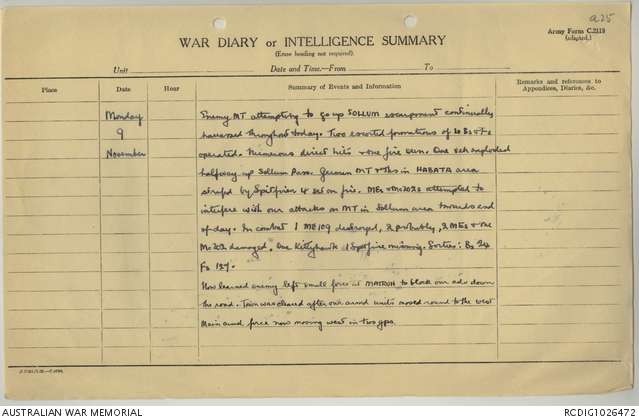 a25
Army Form C.2118
(adapted.)
WAR DIARY or INTELLIGENCE SUMMARY
(Erase heading not required).
Unit Date and Time.—From To
Place Date Hour Summary of Events and Information Remarks and references to
Appendices, Diaries, &c.
Monday
9
November
Enemy MT attempting to go up SOLLUM escarpment continually
harassed throughout today. Two escorted formations of
operated. Numerous direct hits & one fire seen. One veh exploded
halfway up Sollum Pass. German MT & in HABATA area
strafed by Spitfires 4 set on fire. MEs & Mc202s attempted to
interfere with our attacks on MT in Sollum area towards end
of day. In combat 1 ME109 destroyed, 2 probably, 2 MEs & one
Mc202 damaged. One Kittyhawk 1 Spitfire missing. Sorties: Bs 24
Fs 127.
Now learned enemy left small force at MATRUH to block our adv down
the road. Town was cleared after our armd units moved round to the west
Main armd force now moving west in two gps.
AUSTRALIAN WAR MEMORIAL
RCDIG1026472